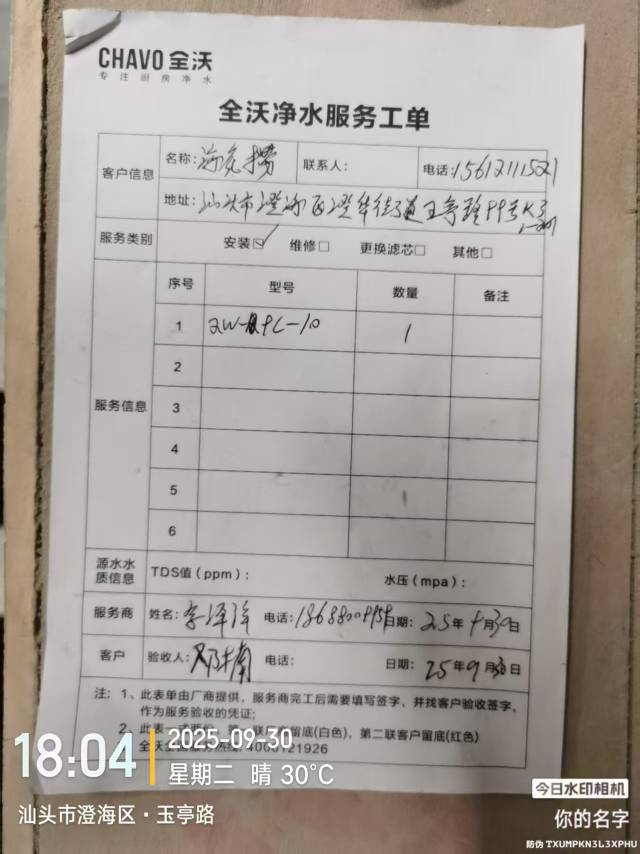 CHAVO 全沃
专注厨房净水
全沃净水服务工单
客户信息
名称: 海底捞 联系人: 电话: 15612111521
地址: 汕头市澄海区澄华街道
服务类别 安装☑ 维修□ 更换滤芯□ 其他□
服务信息
序号 型号 数量 备注
1 1
2
3
4
5
6
源水水质信息 TDS值（ppm）: 水压（mpa）:
服务商 姓名: 李泽 电话: 日期: 25年9月30日
客户 验收人: 电话: 日期: 25年9月30日
注: 1、此表单由厂商提供，服务商完工后需要填写签字，并找客户验收签字，
作为服务验收的凭证;
2、此表一式两份，第一联厂家留底(白色)，第二联客户留底(红色)
全沃 4000121926
18:04
2025-09-30
星期二 晴 30℃
汕头市澄海区·玉亭路
今日水印相机
你的名字
防伪 TXUMPKN3L3XPHU